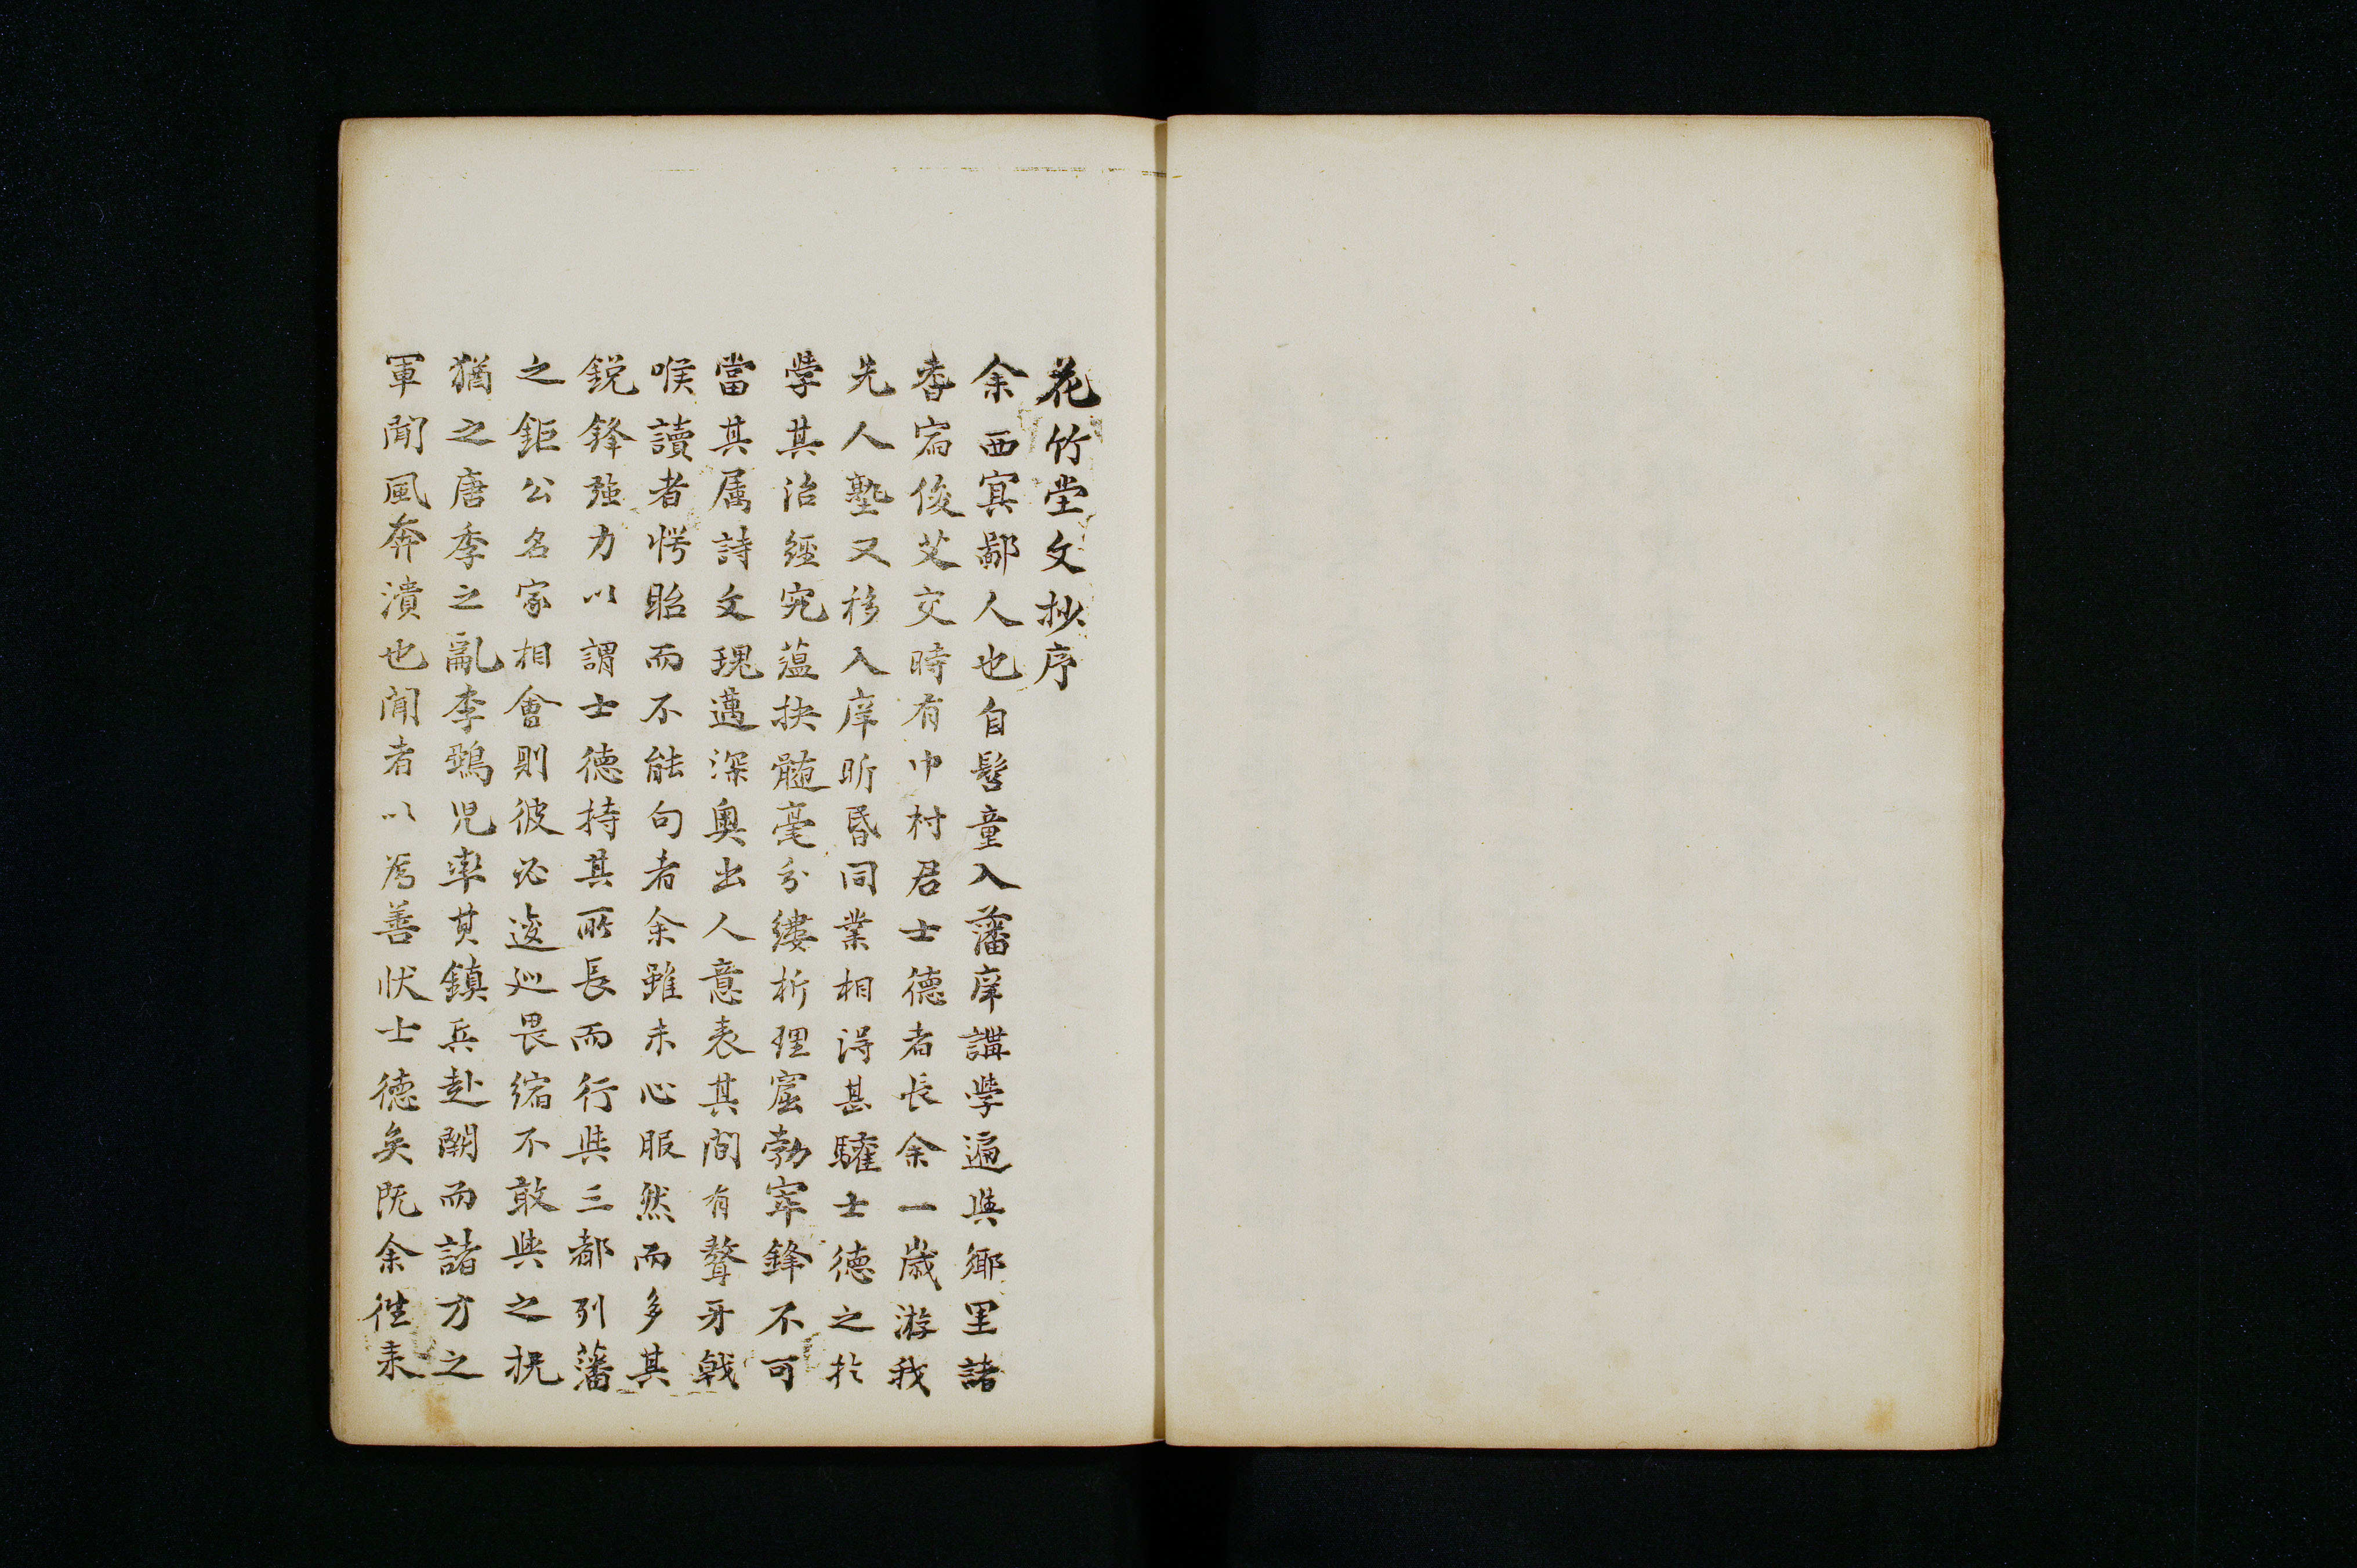 花竹堂文抄序
余西㝠鄙人也自髫童入藩庠講学遍與鄉里諸
耆宿俊艾交時有中村君士德者長余一歳游我
先人塾又移入庠昕昏同業相得甚驩士德之於
学其治經究蘊抉髓毫分縷析理窟勃窣鋒不可
當其属詩文瑰邁深奧出人意表其間有聱牙戟
喉讀者愕眙而不能句者余雖未心服然而多其
鋭鋒强力以謂士德持其所長而行與三都列藩
之鉅公名家相會則彼必逡巡畏縮不敢與之抗
猶之唐季之亂李鵶児率其鎮兵赴闕而諸方之
軍聞風奔潰也聞者以為善状士德矣既余徃来